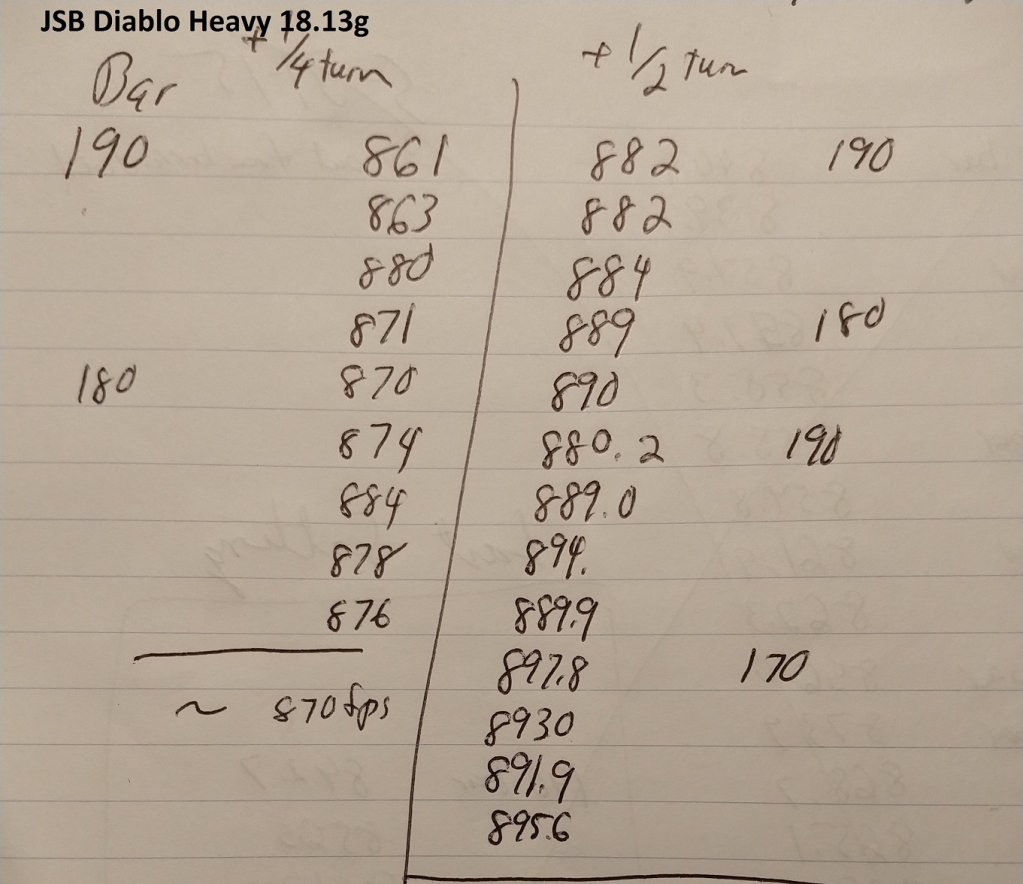 JSB Diablo Heavy 18.13g
Bar + 1/4 turn + 1/2 turn
190 861 882 190
863 882
880 884
871 889 180
180 870 890
874 880.2 190
884 889.0
878 894.
876 889.9
897.8 170
~ 870 fps 8930
891.9
895.6